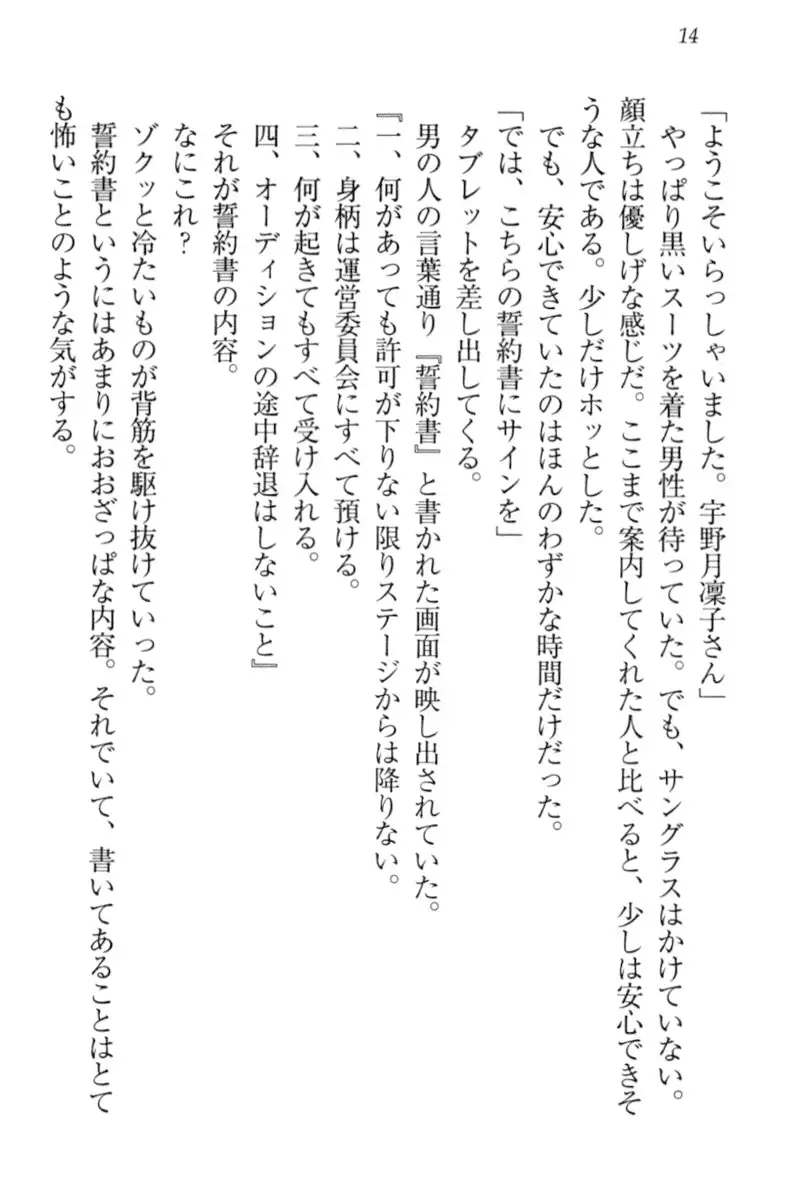 14
「ようこそいらっしゃいました。宇野月凜子さん」
　やっぱり黒いスーツを着た男性が待っていた。でも、サングラスはかけていない。
顔立ちは優しげな感じだ。ここまで案内してくれた人と比べると、少しは安心できそ
うな人である。少しだけホッとした。
　でも、安心できていたのはほんのわずかな時間だけだった。
「では、こちらの誓約書にサインを」
　タブレットを差し出してくる。
　男の人の言葉通り『誓約書』と書かれた画面が映し出されていた。
『一、何があっても許可が下りない限りステージからは降りない。
　二、身柄は運営委員会にすべて預ける。
　三、何が起きてもすべて受け入れる。
　四、オーディションの途中辞退はしないこと』
　それが誓約書の内容。
　なにこれ？
　ゾクッと冷たいものが背筋を駆け抜けていった。
　誓約書というにはあまりにおおざっぱな内容。それでいて、書いてあることはとて
も怖いことのような気がする。